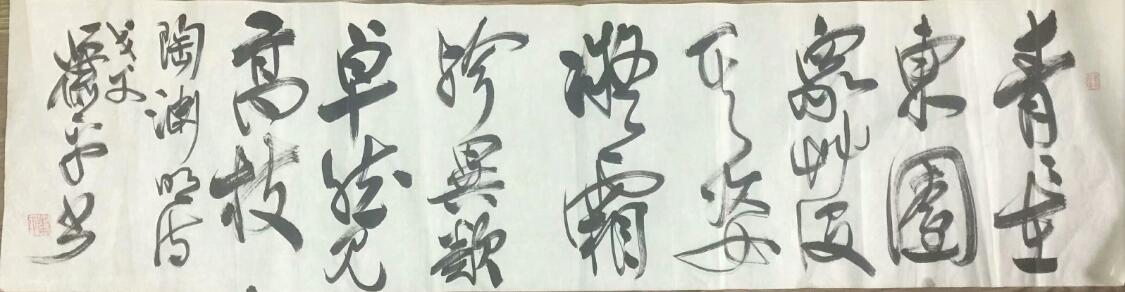 青〻在
東園
眾艸沒
其姿
凝霜
殄異類
卓然見
高枝
陶淵明詩
書